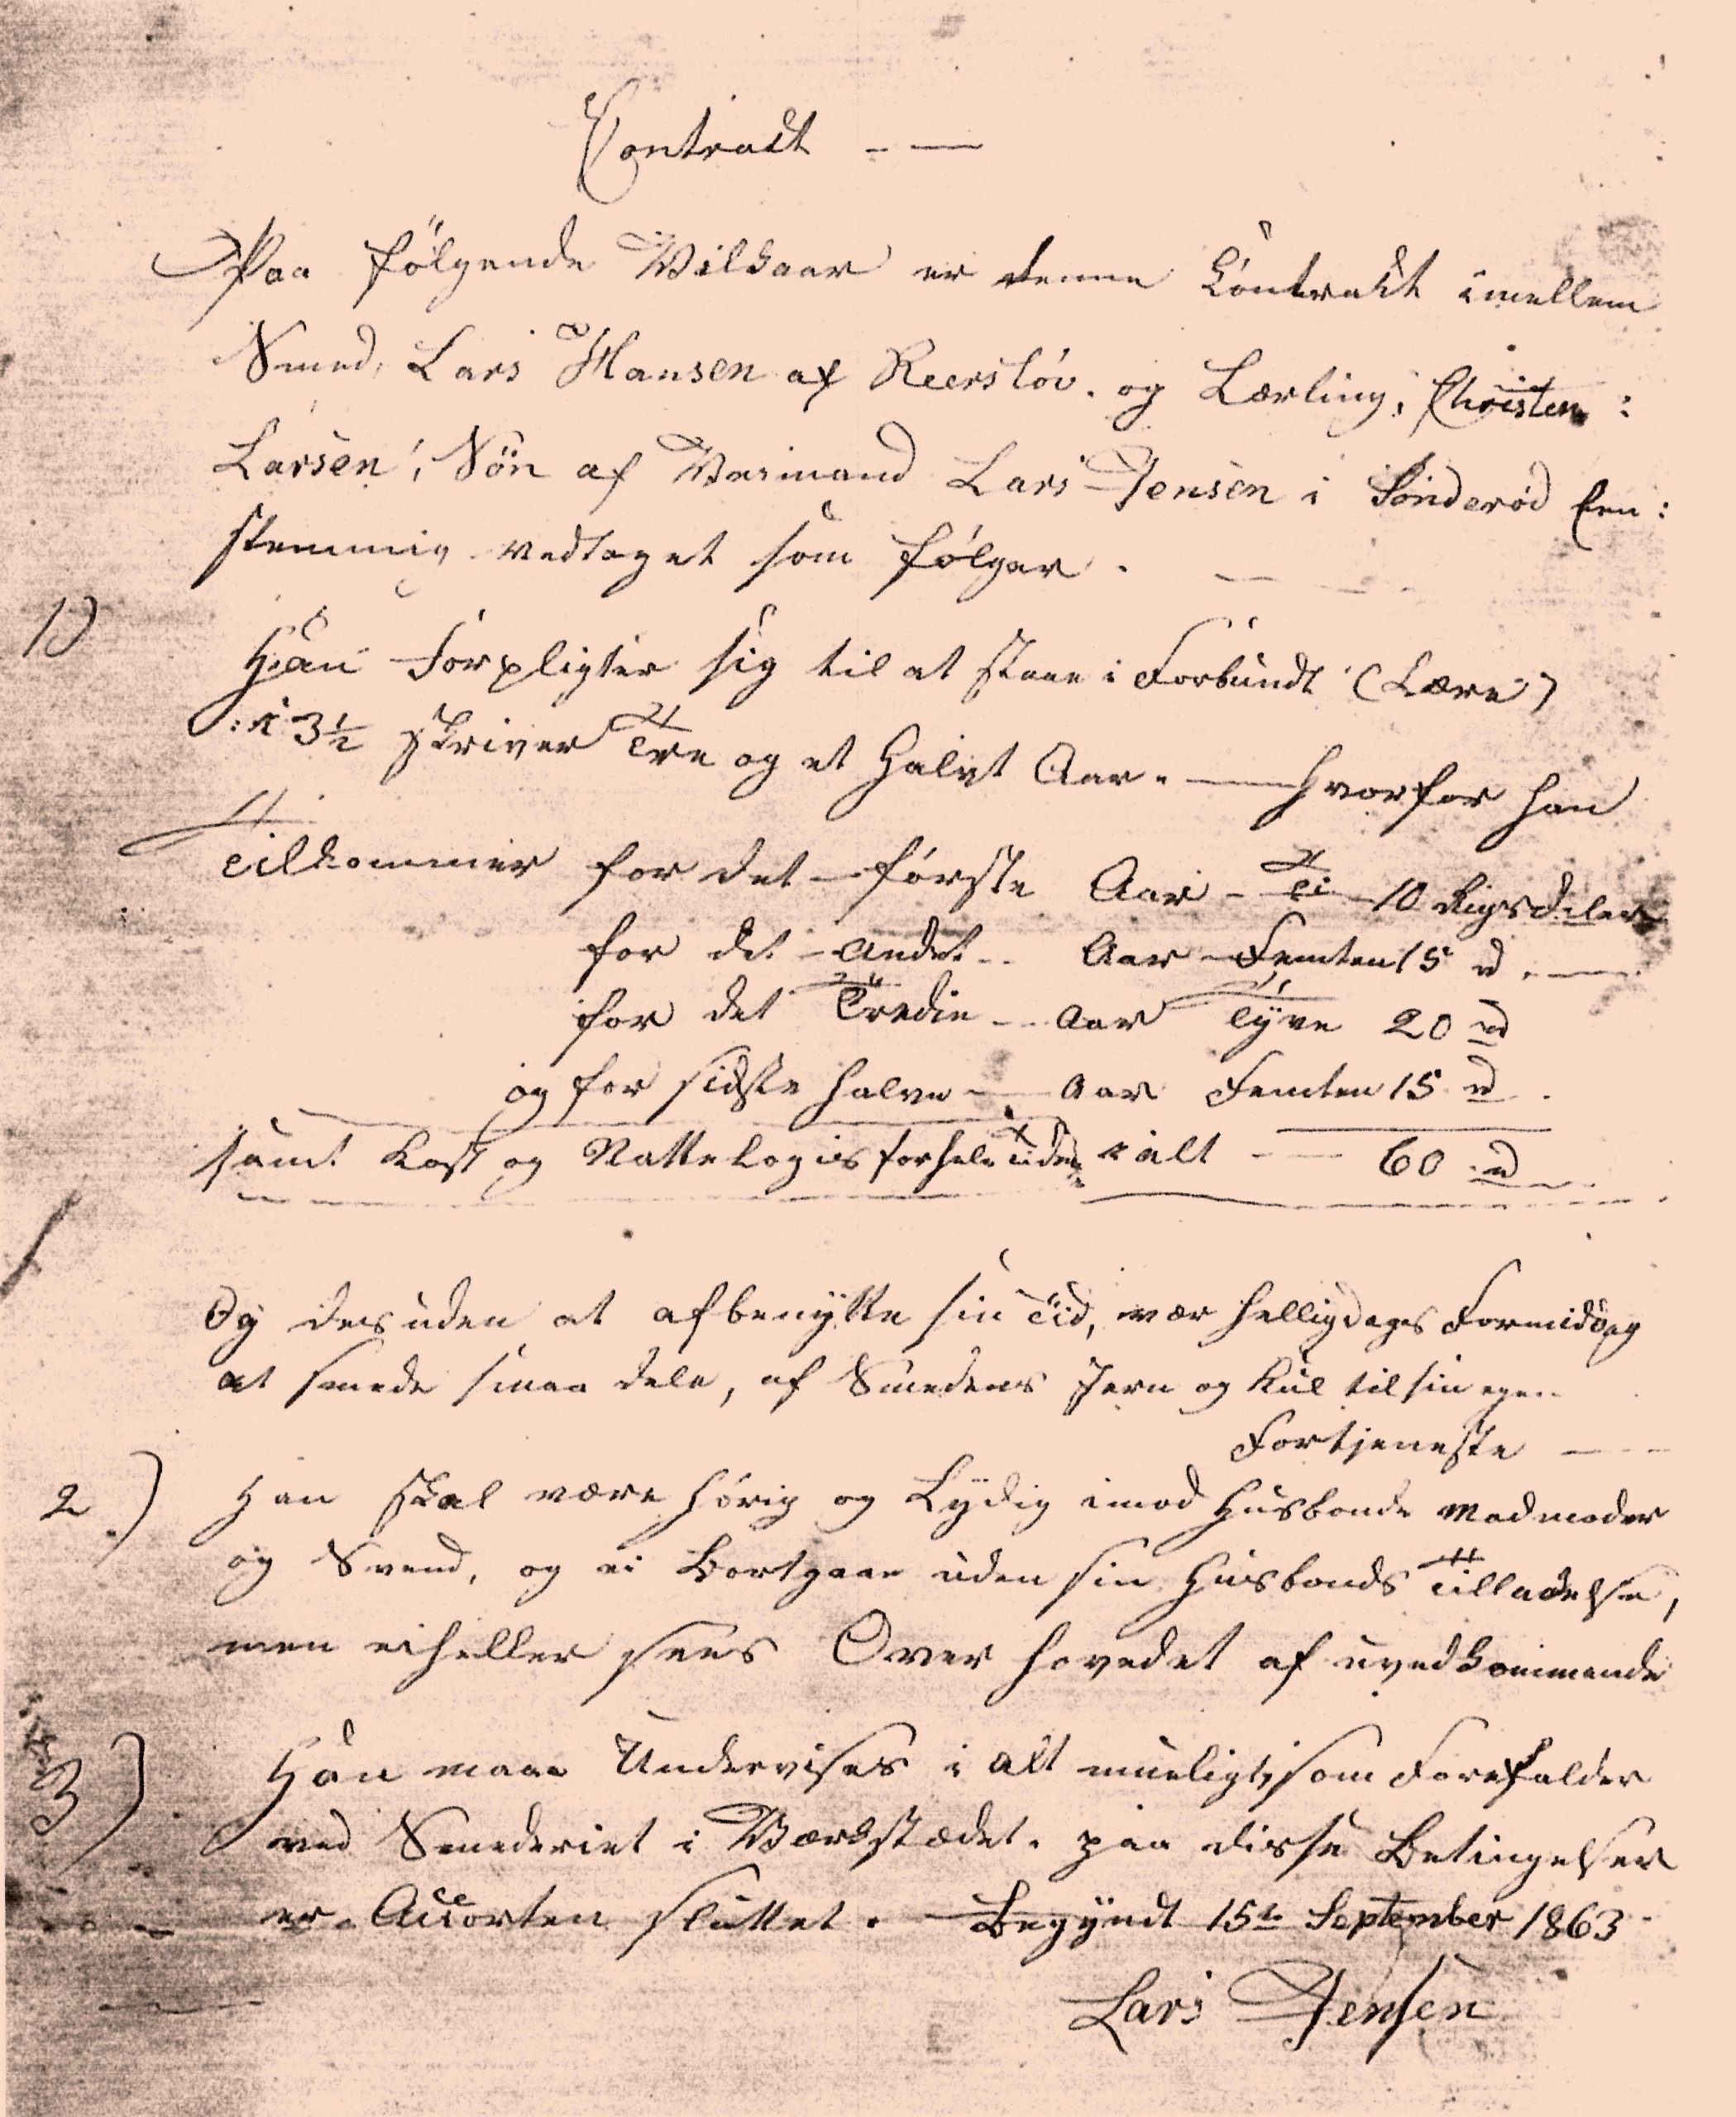 Contrakt - —
Paa følgende Vilkaar er denne Contrakt imellem
Smed, Lars Hansen af Reersløv. og Lærling, Christen :
Larsen, Søn af Boelsmand Lars Jensen i Sønderød Een :
stemmig vedtaget som følger .
1) Han forpligter sig til at staae i Forbundt (Lære)
: i 3½ skriver Tre og et Halvt Aar. — hvorfor han
Tilkommer for det — første Aar — Ti — 10 Rigsdaler
for det — andet — Aar — Femten 15 rd . —
for det Tredie — Aar Tyve 20 rd
og for sidste halve — Aar Femten 15 rd .
samt Kost og Natte Logies for hele Tiden ialt — 60 rd
Og desuden at afbenytte sin Tid, vær helligdags Formidag
at smede smaa dele, af Smedens Jern og Kul til sin egen
Fortjeneste —
2) Han skal være hørig og Lydig imod Husbonde Madmoder
og Svend, og ei Bortgaae uden sin Husbonds Tilladelse,
men eiheller sees Over hovedet af uvedkommende
3) Han maae Undervises i alt mueligt, som Forefalder
ved Smederiet i Værkstædet. paa disse Betingelser
er Accorten sluttet . — Begyndt 15t September 1863
Lars Jensen